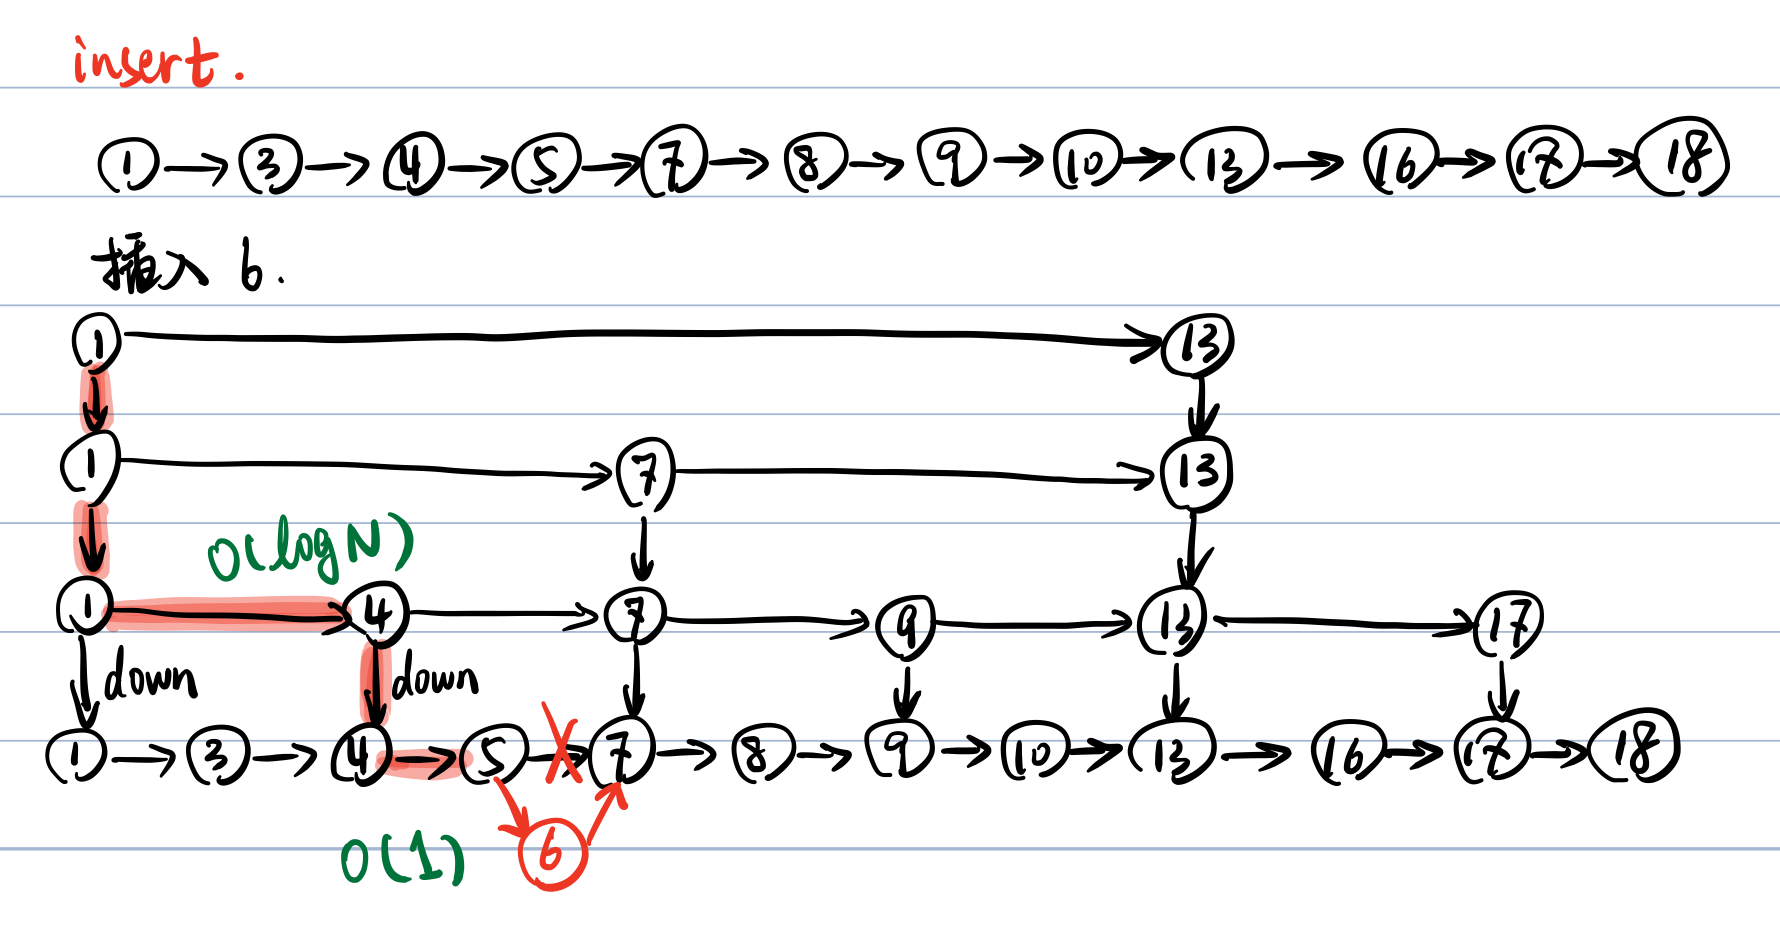 insert.
1 3 4 5 7 8 9 10 13 16 17 18
插入 6.
1 13
1 7 13
O(logN)
1 4 7 9 13 17
down down
1 3 4 5 7 8 9 10 13 16 17 18
O(1) 6